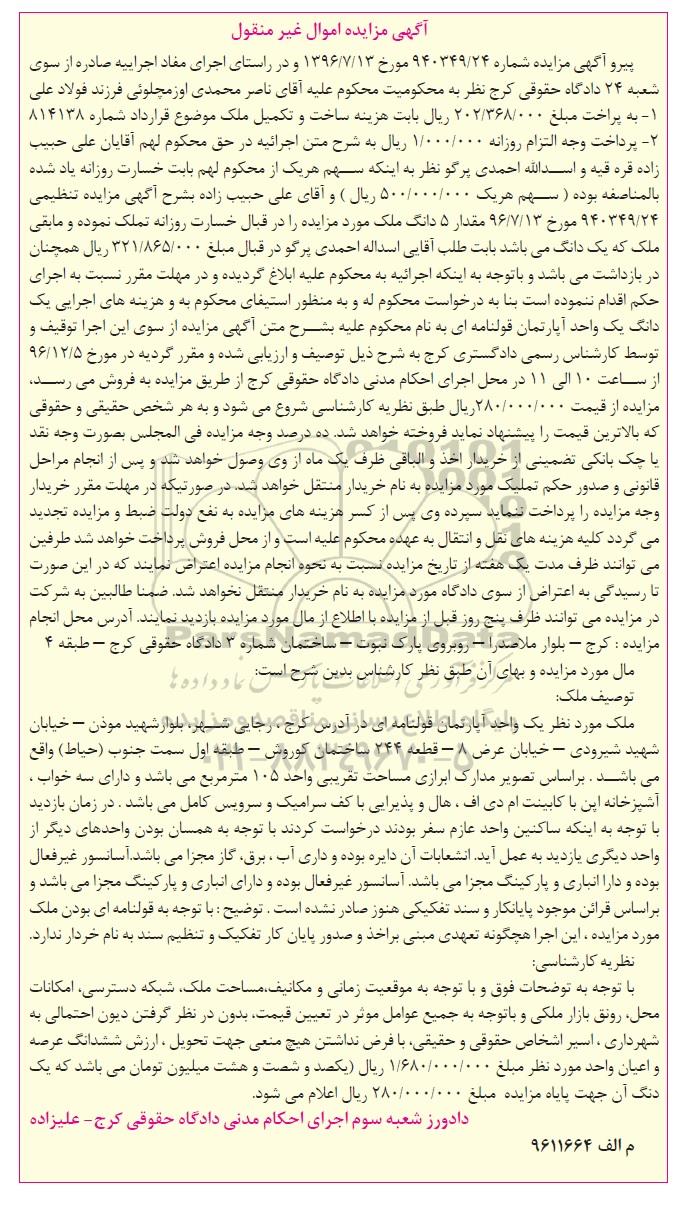 آگهی مزایده اموال غیر منقول
پیرو آگهی مزایده شماره ۹۴۰۳۴۹/۲۴ مورخ ۱۳۹۶/۷/۱۳ و در راستای اجرای مفاد اجراییه صادره از سوی
شعبه ۲۴ دادگاه حقوقی کرج نظر به محکومیت محکوم علیه آقای ناصر محمدی اوزمچلوئی فرزند فولاد علی
۱- به پراخت مبلغ ۲۰۲/۳۶۸/۰۰۰ ریال بابت هزینه ساخت و تکمیل ملک موضوع قرارداد شماره ۸۱۴۱۳۸
۲- پرداخت وجه التزام روزانه ۱/۰۰۰/۰۰۰ ریال به شرح متن اجرائیه در حق محکوم لهم آقایان علی حبیب
زاده قره قیه و اسدالله احمدی پرگو نظر به اینکه سهم هریک از محکوم لهم بابت خسارت روزانه یاد شده
بالمناصفه بوده ( سهم هریک ۵۰۰/۰۰۰/۰۰۰ ریال ) و آقای علی حبیب زاده بشرح آگهی مزایده تنظیمی
۹۴۰۳۴۹/۲۴ مورخ ۹۶/۷/۱۳ مقدار ۵ دانگ ملک مورد مزایده را در قبال خسارت روزانه تملک نموده و مابقی
ملک که یک دانگ می باشد بابت طلب آقایی اسداله احمدی پرگو در قبال مبلغ ۳۲۱/۸۶۵/۰۰۰ ریال همچنان
در بازداشت می باشد و باتوجه به اینکه اجرائیه به محکوم علیه ابلاغ گردیده و در مهلت مقرر نسبت به اجرای
حکم اقدام ننموده است بنا به درخواست محکوم له و به منظور استیفای محکوم به و هزینه های اجرایی یک
دانگ یک واحد آپارتمان قولنامه ای به نام محکوم علیه بشرح متن آگهی مزایده از سوی این اجرا توقیف و
توسط کارشناس رسمی دادگستری کرج به شرح ذیل توصیف و ارزیابی شده و مقرر گردیه در مورخ ۹۶/۱۲/۵
از ساعت ۱۰ الی ۱۱ در محل اجرای احکام مدنی دادگاه حقوقی کرج از طریق مزایده به فروش می رسد،
مزایده از قیمت ۲۸۰/۰۰۰/۰۰۰ریال طبق نظریه کارشناسی شروع می شود و به هر شخص حقیقی و حقوقی
که بالاترین قیمت را پیشنهاد نماید فروخته خواهد شد. ده درصد وجه مزایده فی المجلس بصورت وجه نقد
یا چک بانکی تضمینی از خریدار اخذ و الباقی ظرف یک ماه از وی وصول خواهد شد و پس از انجام مراحل
قانونی و صدور حکم تملیک مورد مزایده به نام خریدار منتقل خواهد شد. در صورتیکه در مهلت مقرر خریدار
وجه مزایده را پرداخت ننماید سپرده وی پس از کسر هزینه های مزایده به نفع دولت ضبط و مزایده تجدید
می گردد کلیه هزینه های نقل و انتقال به عهده محکوم علیه است و از محل فروش پرداخت خواهد شد طرفین
می توانند ظرف مدت یک هفته از تاریخ مزایده نسبت به نحوه انجام مزایده اعتراض نمایند که در این صورت
تا رسیدگی به اعتراض از سوی دادگاه مورد مزایده به نام خریدار منتقل نخواهد شد. ضمنا طالبین به شرکت
در مزایده می توانند ظرف پنج روز قبل از مزایده با اطلاع از مال مورد مزایده بازدید نمایند. آدرس محل انجام
مزایده : کرج – بلوار ملاصدرا – روبروی پارک نبوت – ساختمان شماره ۳ دادگاه حقوقی کرج – طبقه ۴
مال مورد مزایده و بهای آن طبق نظر کارشناس بدین شرح است:
توصیف ملک:
ملک مورد نظر یک واحد آپارتمان قولنامه ای در آدرس کرج ، رجایی شهر، بلوارشهید موذن – خیابان
شهید شیرودی – خیابان عرض ۸ – قطعه ۲۴۴ ساختمان کوروش – طبقه اول سمت جنوب (حیاط) واقع
می باشد . براساس تصویر مدارک ابرازی مساحت تقریبی واحد ۱۰۵ مترمربع می باشد و دارای سه خواب ،
آشپزخانه اپن با کابینت ام دی اف ، هال و پذیرایی با کف سرامیک و سرویس کامل می باشد . در زمان بازدید
با توجه به اینکه ساکنین واحد عازم سفر بودند درخواست کردند با توجه به همسان بودن واحدهای دیگر از
واحد دیگری یازدید به عمل آید. انشعابات آن دایره بوده و داری آب ، برق، گاز مجزا می باشد.آسانسور غیرفعال
بوده و دارا انباری و پارکینگ مجزا می باشد. آسانسور غیرفعال بوده و دارای انباری و پارکینگ مجزا می باشد و
براساس قرائن موجود پایانکار و سند تفکیکی هنوز صادر نشده است . توضیح : با توجه به قولنامه ای بودن ملک
مورد مزایده ، این اجرا هچگونه تعهدی مبنی براخذ و صدور پایان کار تفکیک و تنظیم سند به نام خردار ندارد.
نظریه کارشناسی:
با توجه به توضحات فوق و با توجه به موقعیت زمانی و مکانیف،مساحت ملک، شبکه دسترسی، امکانات
محل، رونق بازار ملکی و باتوجه به جمیع عوامل موثر در تعیین قیمت، بدون در نظر گرفتن دیون احتمالی به
شهرداری ، اسیر اشخاص حقوقی و حقیقی، با فرض نداشتن هیچ منعی جهت تحویل ، ارزش ششدانگ عرصه
و اعیان واحد مورد نظر مبلغ ۱/۶۸۰/۰۰۰/۰۰۰ ریال (یکصد و شصت و هشت میلیون تومان می باشد که یک
دنگ آن جهت پایاه مزایده مبلغ ۲۸۰/۰۰۰/۰۰۰ ریال اعلام می شود.
دادورز شعبه سوم اجرای احکام مدنی دادگاه حقوقی کرج- علیزاده
م الف ۹۶۱۱۶۶۴